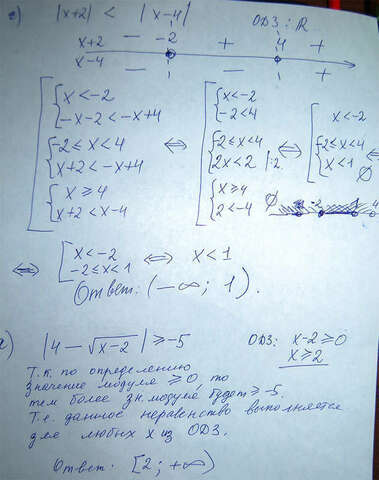 г) |x+2| < |x-4| ОДЗ: ℝ
x+2 — -2 + 4 +
x-4 — — +
[ { x < -2 { x < -2 [ x < -2
{ -x-2 < -x+4 { -2 < 4
{ -2 ≤ x < 4 ⇔ { -2 ≤ x < 4 ⇔ { -2 ≤ x < 4
{ x+2 < -x+4 { 2x < 2 |:2 { x < 1
{ x ≥ 4 { x ≥ 4 ∅
{ x+2 < x-4 { 2 < -4 ∅ -2 1 4
⇔ [ x < -2 ⇔ x < 1
-2 ≤ x < 1
Ответ: (-∞; 1).
|4 - √x-2| ≥ -5 ОДЗ: x-2 ≥ 0
x ≥ 2
Т.к. по определению
значение модуля ≥ 0, то
тем более зн. модуля будет ≥ -5.
Т.е. данное неравенство выполняется
для любых x из ОДЗ.
Ответ: [2; +∞)